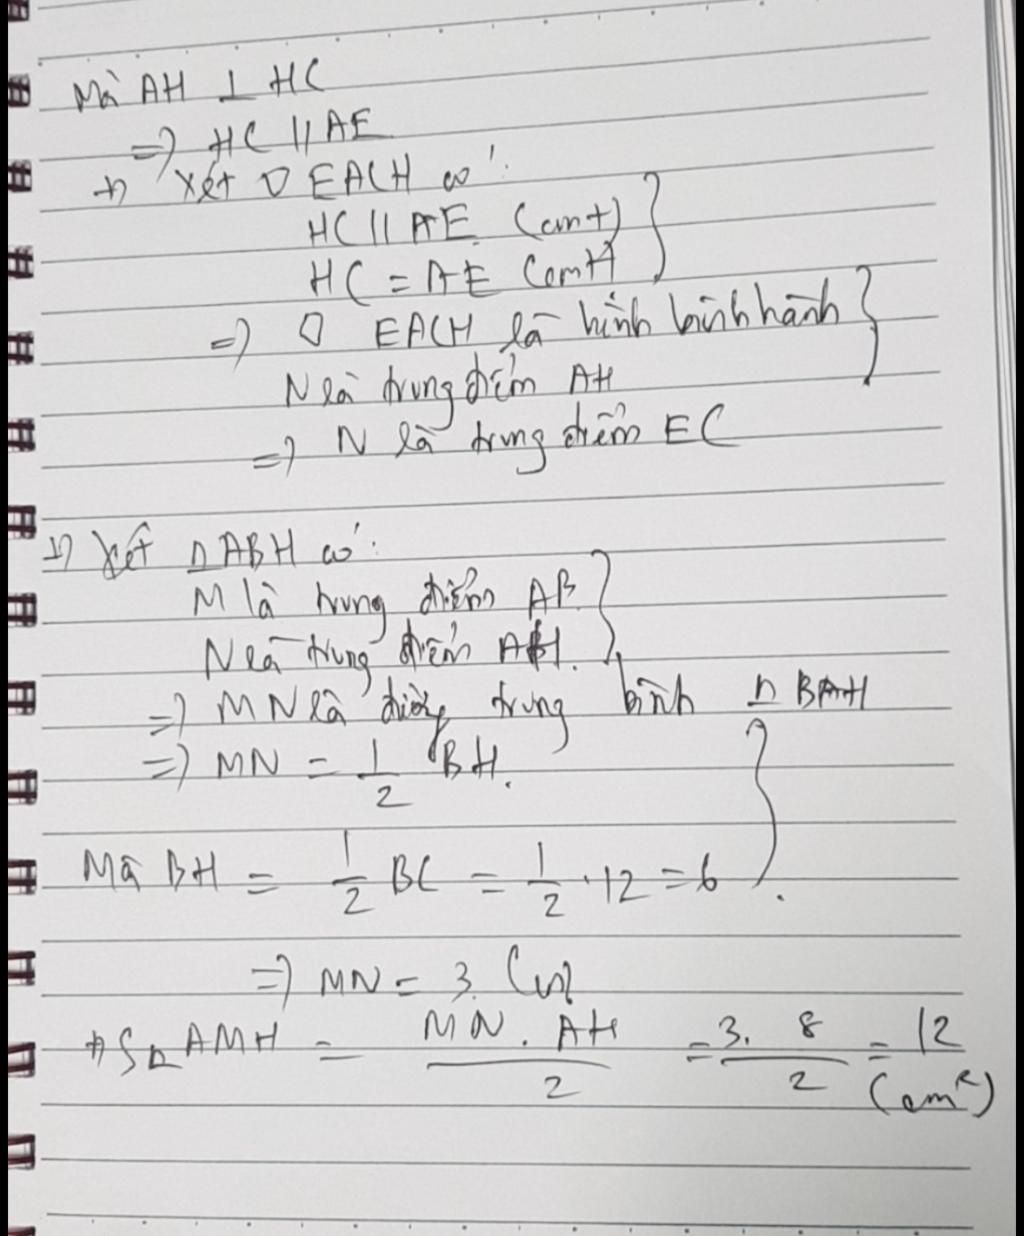 Mà AH ⊥ HC
=> HC // AE
+) Xét □ EACH có:
HC // AE (cmt)
HC = AE (cmt)
=> □ EACH là hình bình hành
N là trung điểm AH
=> N là trung điểm EC
+) Xét △ ABH có:
M là trung điểm AB
N là trung điểm AH.
=> MN là đường trung bình △ BAH
=> MN = 1/2 BH.
Mà BH = 1/2 BC = 1/2 . 12 = 6
=> MN = 3
+) S△ AMH = MN . AH / 2 = 3. 8 / 2 = 12
(cm²)